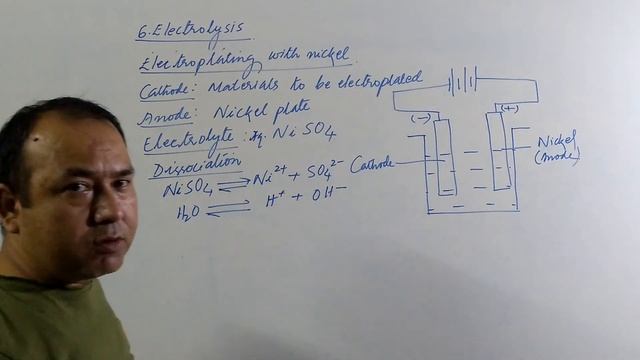 6. Electrolysis
Electroplating with nickel
Cathode: Materials to be electroplated
Anode: Nickel plate
Electrolyte: aq. NiSO4
Dissociation
NiSO4 ⇌ Ni2+ + SO4 2-
H2O ⇌ H+ + OH-
(-)
(+)
Cathode
Nickel
(Anode)